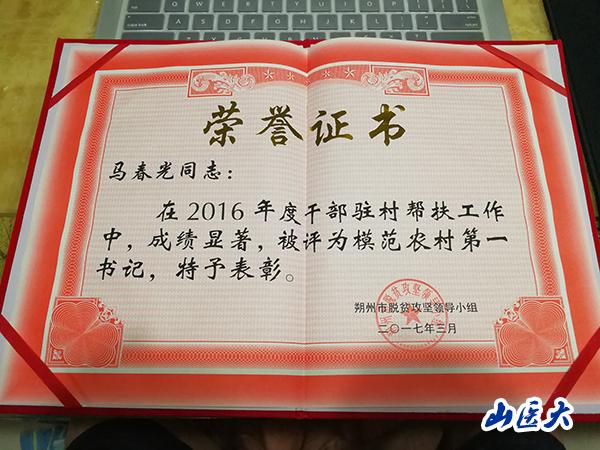 荣誉证书
马春光同志：
在 2016 年度干部驻村帮扶工作
中，成绩显著，被评为模范农村第一
书记，特予表彰。
朔州市脱贫攻坚领导小组
二〇一七年三月
山医大